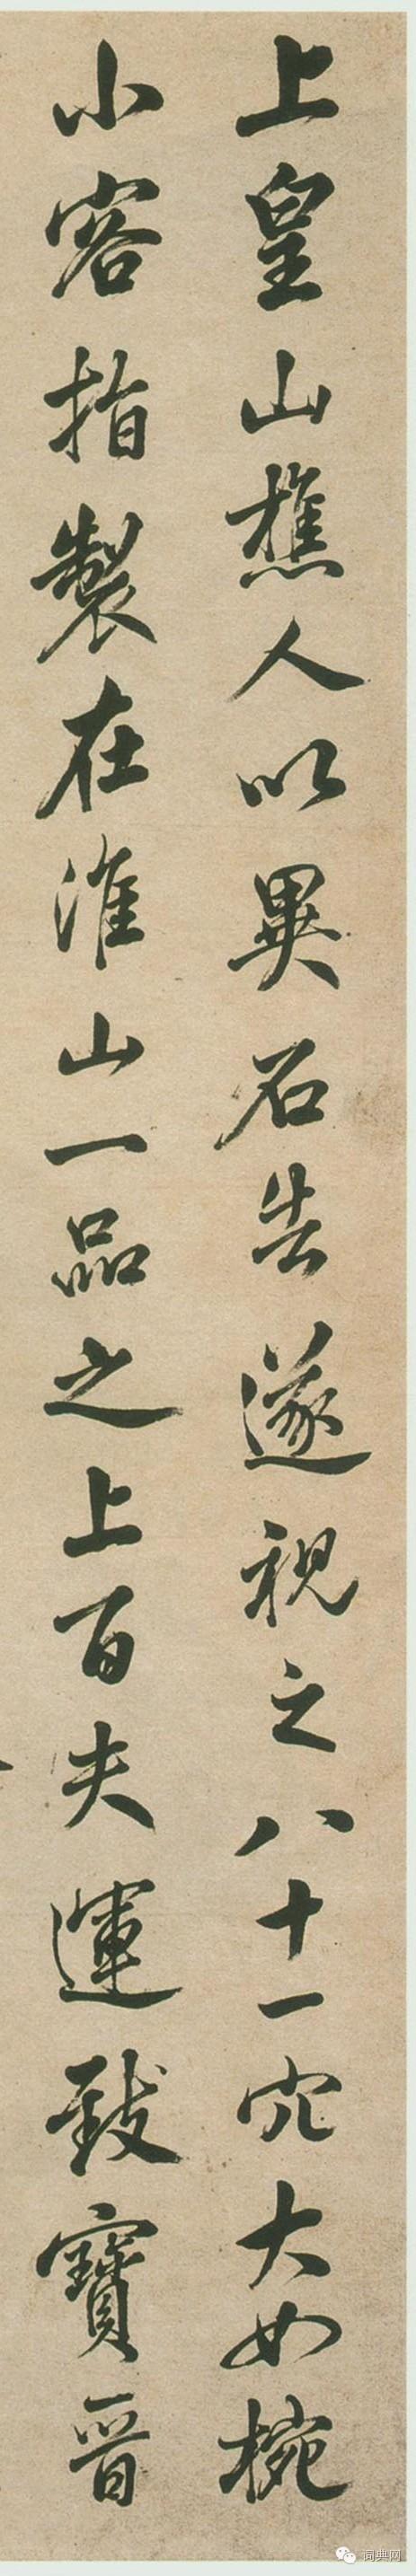 上皇山樵人以異石告遂視之八十一穴大如椀
小容指製在淮山一品之上百夫運致寶晉
词典网